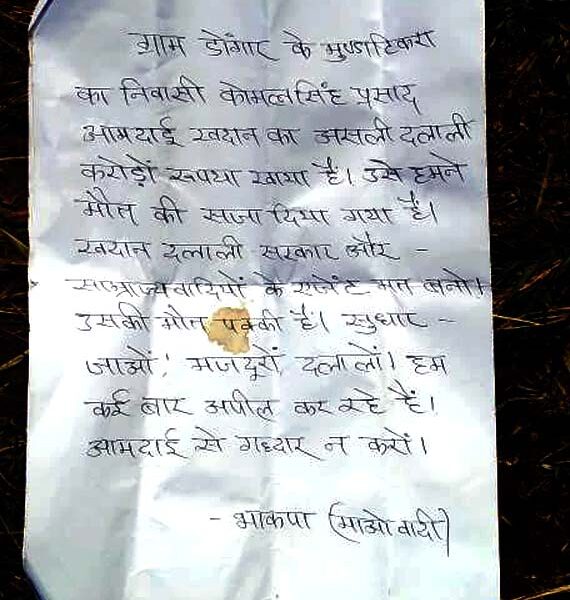 ग्राम डोंगार के मुण्डाटिकरा
का निवासी कोमलसिंह प्रसाद
आमदाई खदान का असली दलाली
करोड़ों रूपया खाया है। उसे हमने
मौत की साजा दिया गया है।
खदान दलाली सरकार और -
साम्राज्यवादियों के एजेंट मत बनो।
उसकी मौत पक्की है। सुधार -
जाओं! मजदूरों, दलालों। हम
कई बार अपील कर रहे हैं।
आमदाई से गद्दार न करों।
- भाकपा (माओवादी)